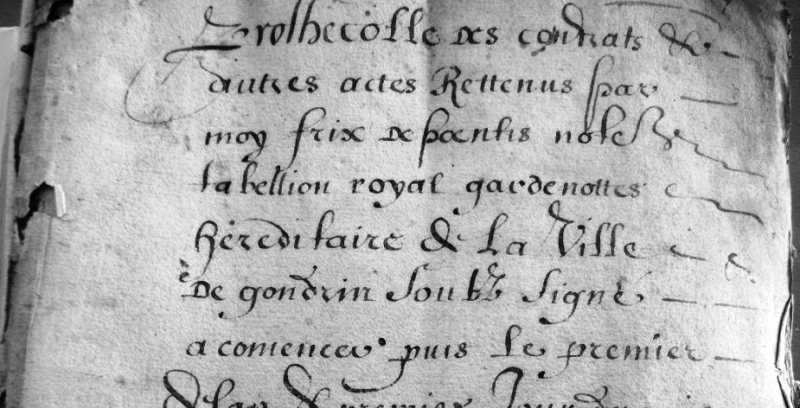 Prothecolle des contrats &
autres actes Rettenus par
moy frix de poentis note
tabellion royal gardenottes
hereditaire de la Ville
De gondrin soubz signé
a comencer puis le premier